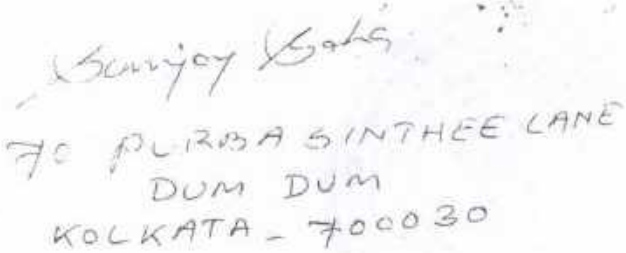 Sunjoy Saha
70 PURBA SINTHEE LANE
DUM DUM
KOLKATA - 700030